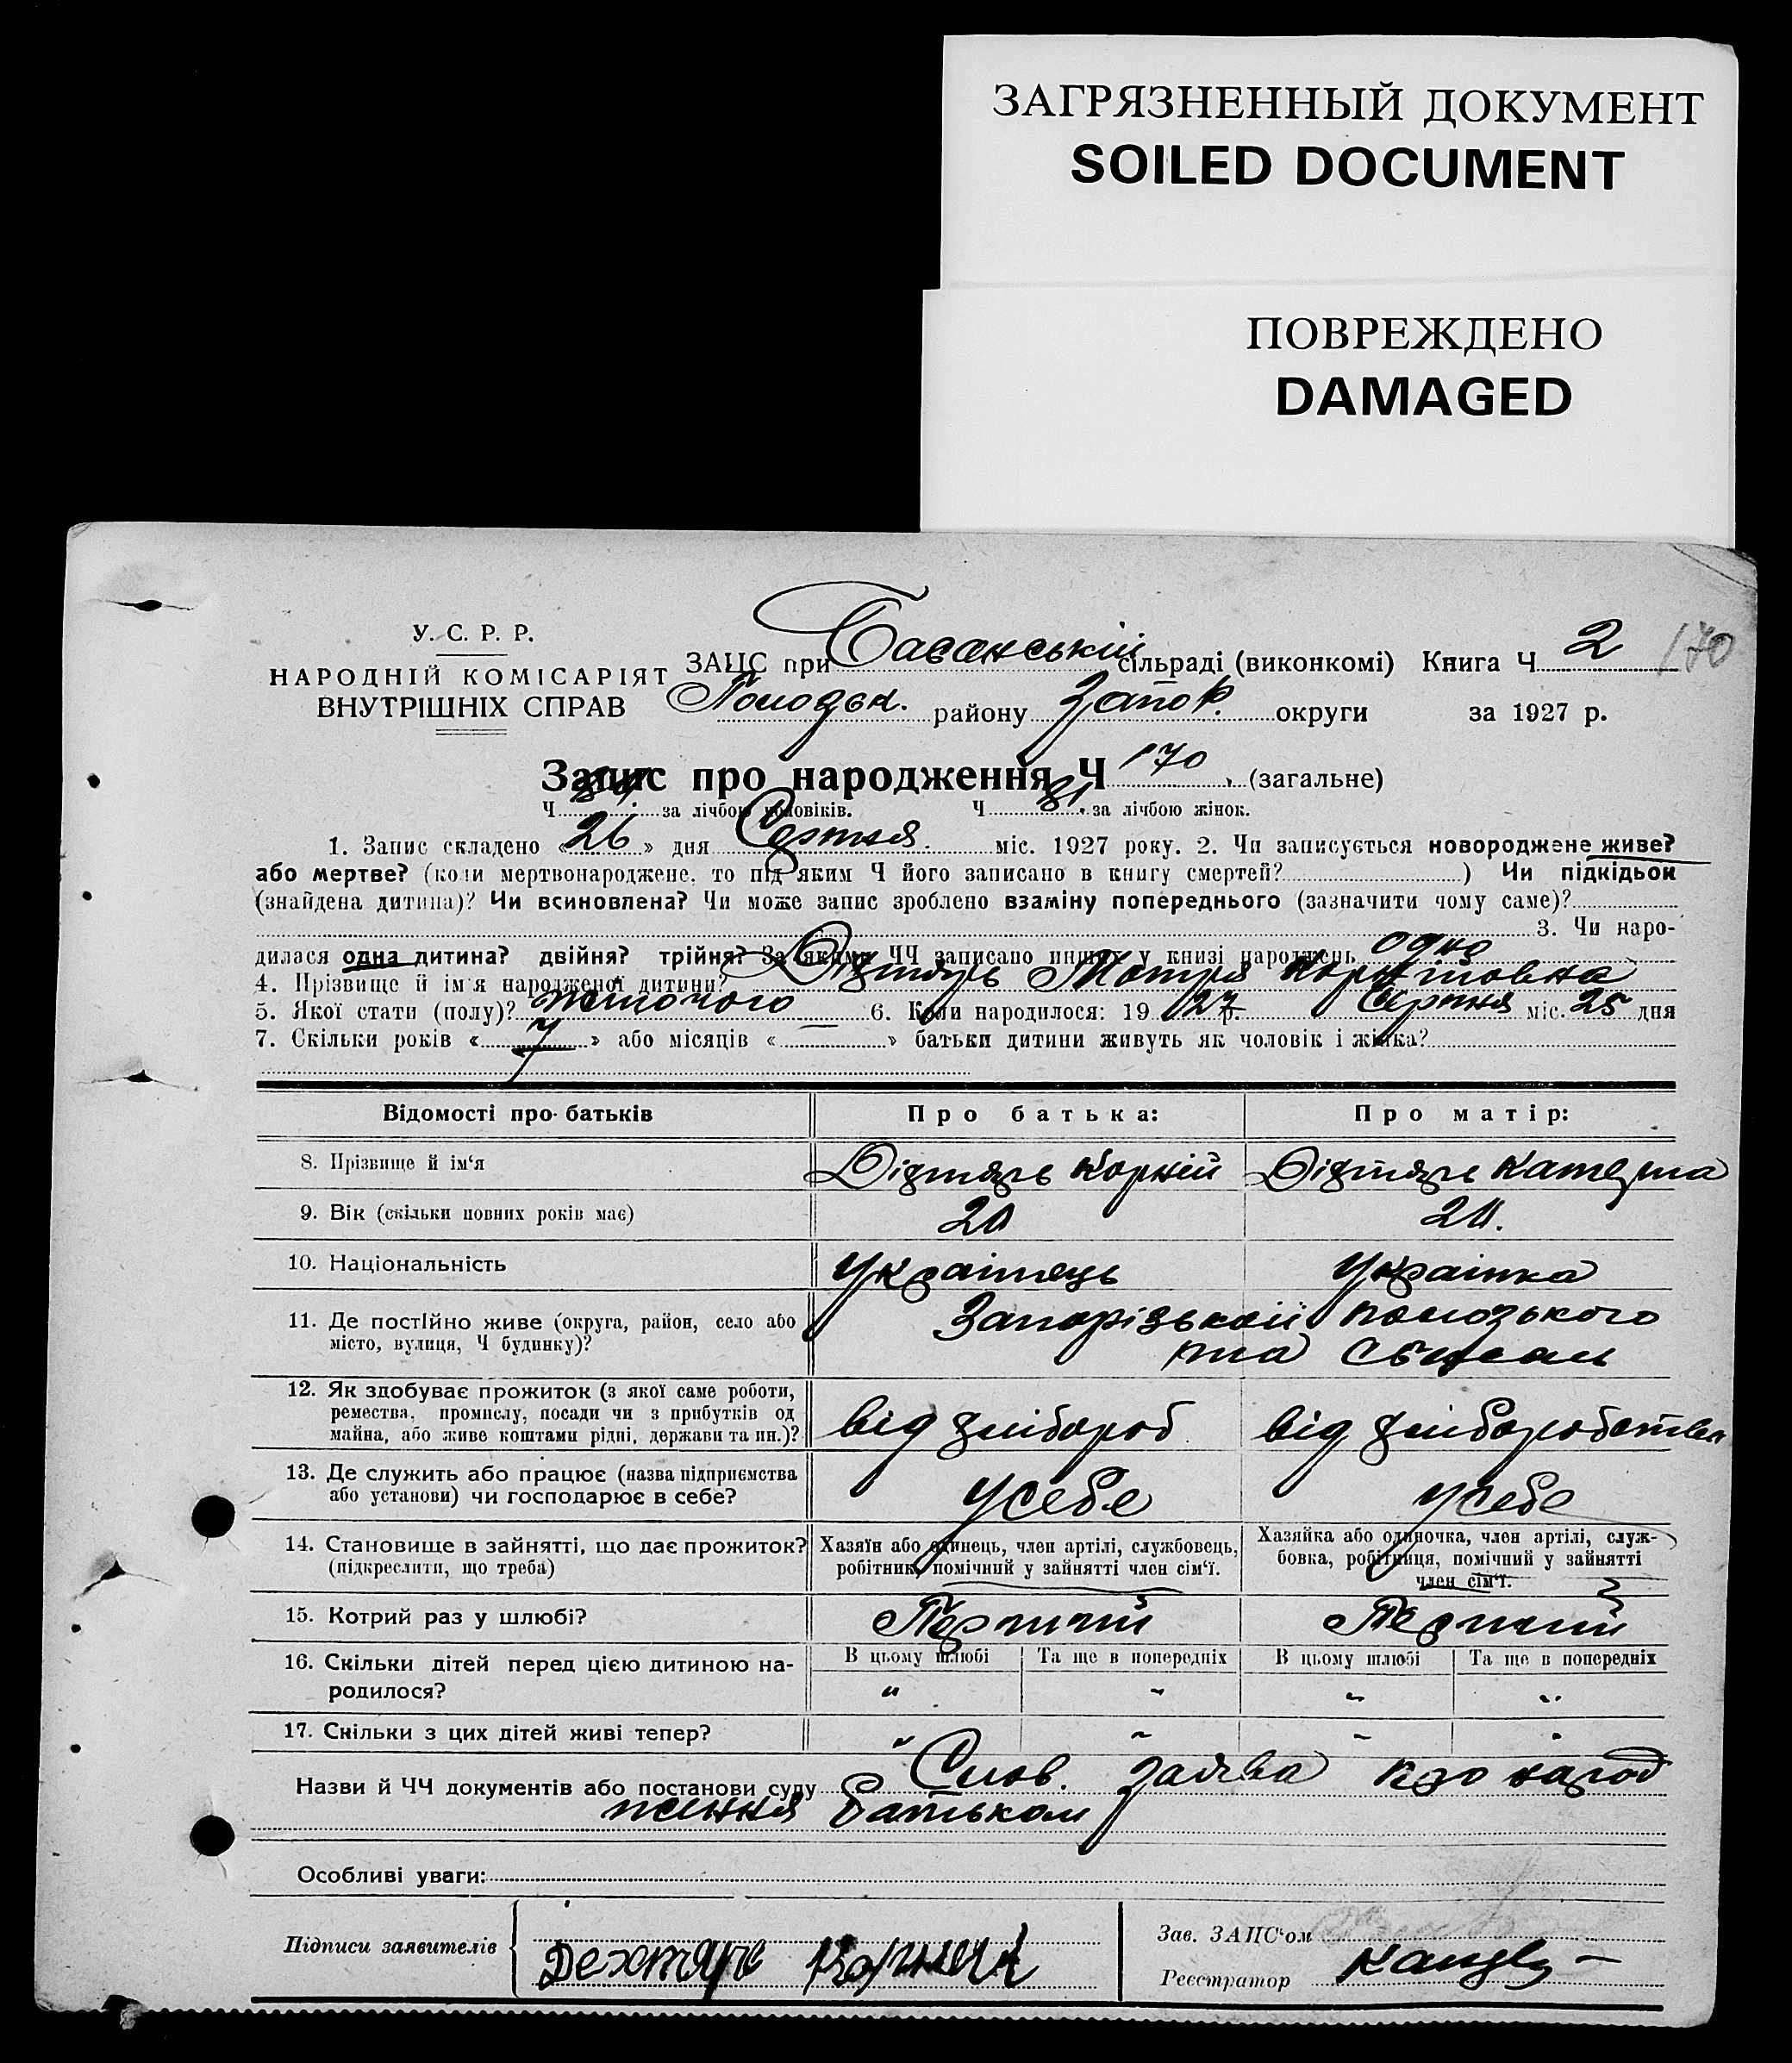 ЗАГРЯЗНЕННЫЙ ДОКУМЕНТ
SOILED DOCUMENT
ПОВРЕЖДЕНО
DAMAGED
У. С. Р. Р.
НАРОДНІЙ КОМІСАРІЯТ
ВНУТРІШНІХ СПРАВ
ЗАЦС при Басанській сільраді (виконкомі) Книга Ч 2 170
району Запор. округи за 1927 р.
Запис про народження Ч 170 (загальне)
Ч за лічбою чоловіків. Ч 81 за лічбою жінок.
1. Запис складено «26» дня Серпня міс. 1927 року. 2. Чи записується новороджене живе?
або мертве? (коли мертвонароджене, то під яким Ч його записано в книгу смертей? ) Чи підкідьок
(знайдена дитина)? Чи всиновлена? Чи може запис зроблено взаміну попереднього (зазначити чому саме)?
3. Чи наро-
дилася одна дитина? двійня? трійня? За якими ЧЧ записано инших у книзі народжень одно
4. Прізвище й ім'я народженої дитини? Дігтярь Мотря
5. Якої стати (полу)? жіночого 6. Коли народилося: 19 27 р. Серпня міс. 25 дня
7. Скільки років « 7 » або місяців « — » батьки дитини живуть як чоловік і жінка?
Відомості про батьків Про батька: Про матір:
8. Прізвище й ім'я Дігтярь Корній Дігтярь Катерина
9. Вік (скільки повних років має) 20
10. Національність Українець Українка
11. Де постійно живе (округа, район, село або
місто, вулиця, Ч будинку)? Запорізької
12. Як здобуває прожиток (з якої саме роботи,
ремества, промислу, посади чи з прибутків од
майна, або живе коштами рідні, держави та ин.)? від хлібороб від хлібородства
13. Де служить або працює (назва підприємства
або установи) чи господарює в себе? у себе у себе
14. Становище в зайнятті, що дає прожиток?
(підкреслити, що треба)
Хазяїн або одинець, член артілі, службовець,
робітник, помічний у зайнятті член сім'ї.
Хазяйка або одиночка, член артілі, служ-
бовка, робітниця, помічний у зайнятті
член сім'ї.
15. Котрий раз у шлюбі? Перший Перший
16. Скільки дітей перед цією дитиною на-
родилося?
В цьому шлюбі Та ще в попередніх В цьому шлюбі Та ще в попередніх
17. Скільки з цих дітей живі тепер?
Назви й ЧЧ документів або постанови суду Слов. заява про народ
ження батьком
Особливі уваги:
Підписи заявителів Дехтярь Корней
Зав. ЗАЦС'ом
Реєстратор